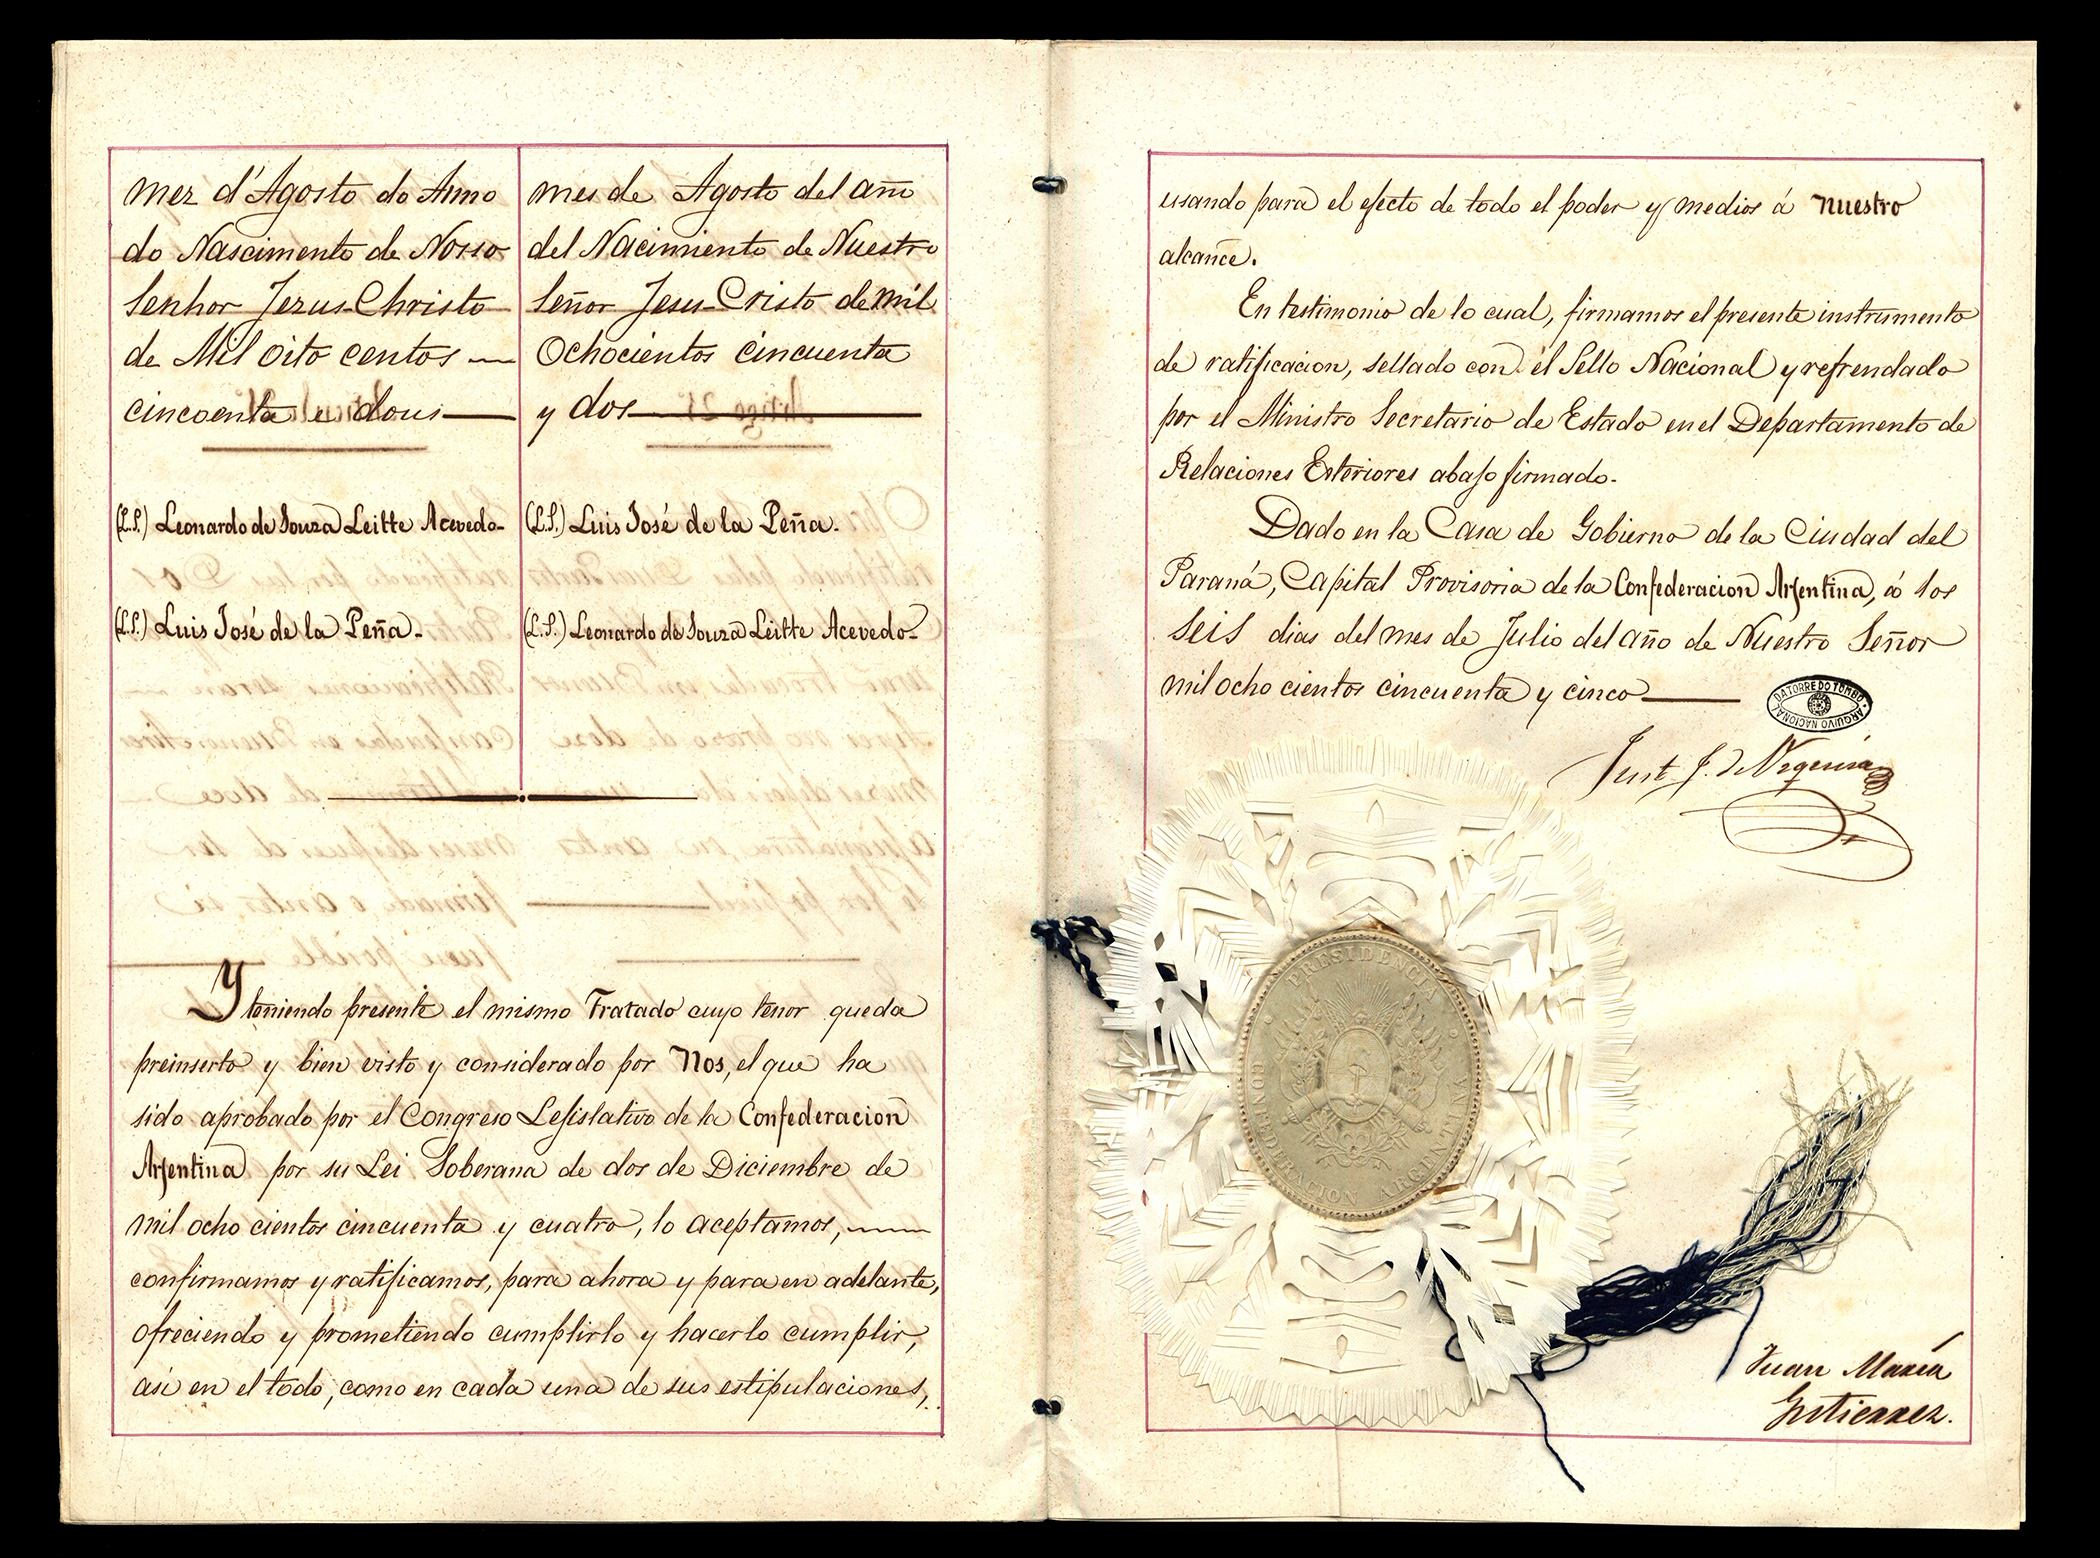 mez d'Agosto do Anno
do Nascimento de Nosso
Senhor Jezus-Christo
de Mil oito centos
cincoenta e dous
mes de Agosto del año
del Nacimiento de Nuestro
Señor Jesu-Cristo de mil
Ochocientos cincuenta
y dos
(L.S.) Leonardo de Souza Leitte Acevedo-
(L.S.) Luis José de la Peña.
(L.S.) Luis José de la Peña.
(L.S.) Leonardo de Souza Leitte Acevedo-
Y teniendo presente el mismo Tratado cuyo tenor queda
preinserto y bien visto y considerado por Nos, el que ha
sido aprobado por el Congreso Lejislativo de la Confederacion
Arjentina por su Lei Soberana de dos de Diciembre de
mil ocho cientos cincuenta y cuatro, lo aceptamos,
confirmamos y ratificamos, para ahora y para en adelante,
ofreciendo y prometiendo cumplirlo y hacerlo cumplir,
asi en el todo, como en cada una de sus estipulaciones,
usando para el efecto de todo el poder y medios á Nuestro
alcance.
En testimonio de lo cual, firmamos el presente instrumento
de ratificacion, sellado con el Sello Nacional y refrendado
por el Ministro Secretario de Estado en el Departamento de
Relaciones Esteriores abajo firmado.
Dado en la Casa de Gobierno de la Ciudad del
Paraná, Capital Provisoria de la Confederacion Arjentina, á los
seis dias del mes de Julio del año de Nuestro Señor
mil ocho cientos cincuenta y cinco
DA TORRE DO TOMBO
ARQUIVO NACIONAL
Just J. de Urquiza
PRESIDENCIA
DE LA CONFEDERACION ARGENTINA
Juan María
Gutierrez.